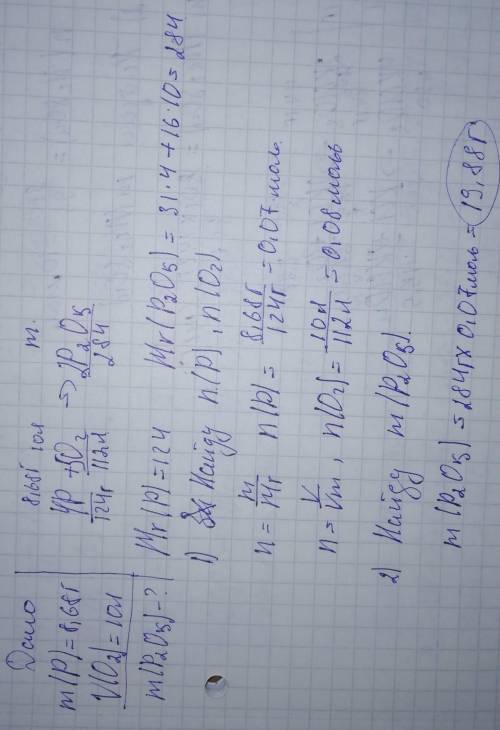 Дано
m(P)=8,68г
V(O₂)=10л
m(P₂O₅)-?
8,68г 10л m.
4P + 5O₂ => 2P₂O₅
124г 112л 284
Mr(P)=124 Mr(P₂O₅)=31·4+16·10=284
1) Найду n(P), n(O₂)
n=m/Mr n(P)=8,68г/124г=0,07 моль.
n=V/Vm, n(O₂)=10л/112л=0,08 моль
2) Найду m(P₂O₅).
m(P₂O₅)=284г x 0,07 моль = 19,88г